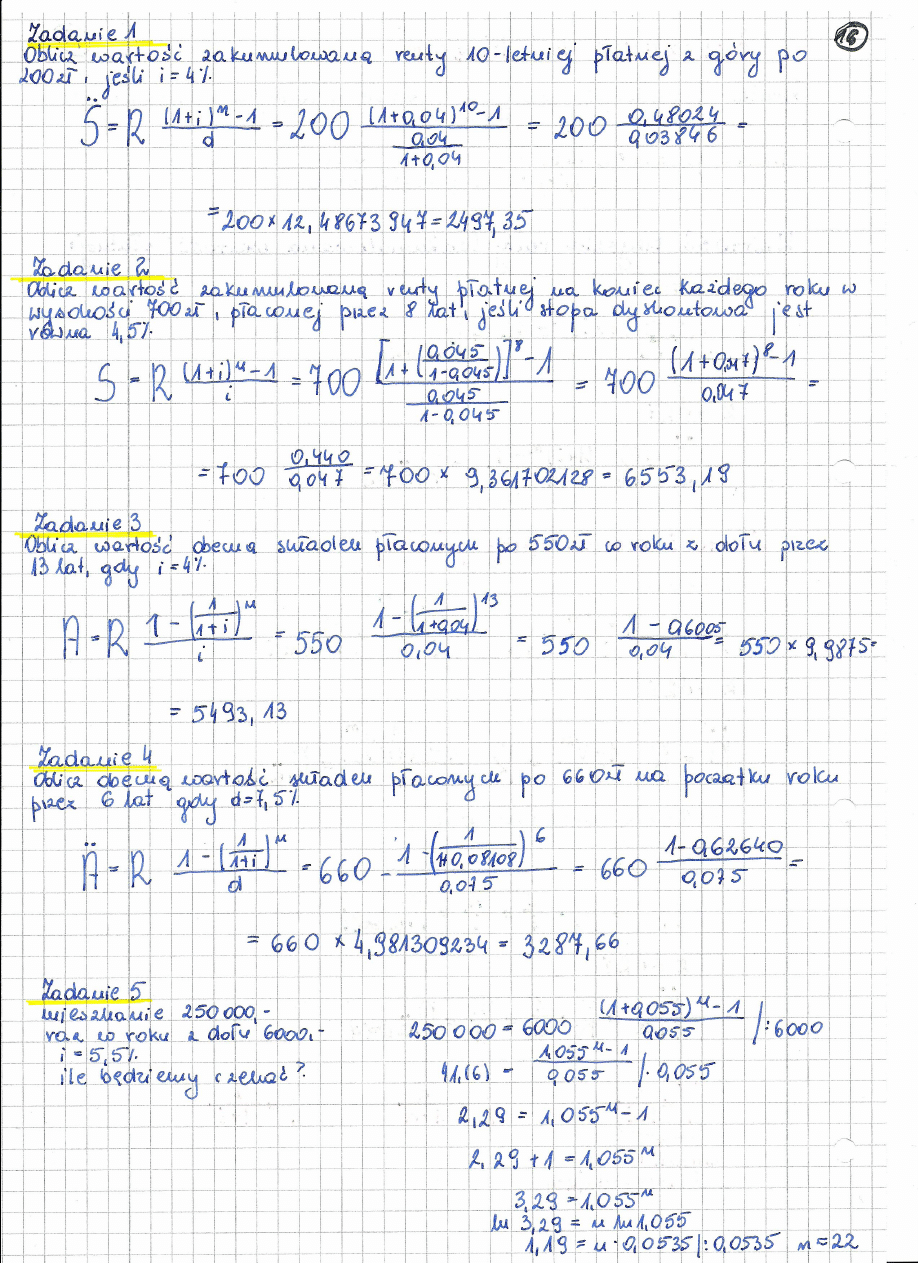 Zadanie 1
16
Oblicz wartość zakumulowaną renty 10-letniej płatnej z góry po
200zł, jeśli i=4%.
S̈ = R ((1+i)^n - 1)/d = 200 ((1+0,04)^10 - 1)/(0,04/(1+0,04)) = 200 0,48024/0,03846 =
= 200 × 12,48673947 = 2497,35
Zadanie 2
Oblicz wartość zakumulowaną renty płatnej na koniec każdego roku w
wysokości 700zł, płaconej przez 8 lat, jeśli stopa dyskontowa jest
równa 4,5%.
S = R ((1+i)^n - 1)/i = 700 ([1+(0,045/(1-0,045))]^8 - 1)/(0,045/(1-0,045)) = 700 ((1+0,047)^8 - 1)/0,047 =
= 700 0,440/0,047 = 700 × 9,361702128 = 6553,19
Zadanie 3
Oblicz wartość obecną składek płaconych po 550zł co roku z dołu przez
13 lat, gdy i=4%.
A = R (1 - (1/(1+i))^n)/i = 550 (1 - (1/(1+0,04))^13)/0,04 = 550 (1 - 0,6005)/0,04 = 550 × 9,9875 =
= 5493,13
Zadanie 4
Oblicz obecną wartość składek płaconych po 660zł na początku roku
przez 6 lat gdy d=7,5%.
Ä = R (1 - (1/(1+i))^n)/d = 660 (1 - (1/(1+0,08108))^6)/0,075 = 660 (1 - 0,62640)/0,075 =
= 660 × 4,981309234 = 3287,66
Zadanie 5
mieszkanie 250 000,-
raz w roku z dołu 6000,-
i = 5,5%
ile będziemy czekać?
250 000 = 6000 ((1+0,055)^n - 1)/0,055 /:6000
41,(6) = (1,055^n - 1)/0,055 /· 0,055
2,29 = 1,055^n - 1
2,29 + 1 = 1,055^n
3,29 = 1,055^n
ln 3,29 = n ln 1,055
1,19 = n · 0,0535 /:0,0535 n = 22